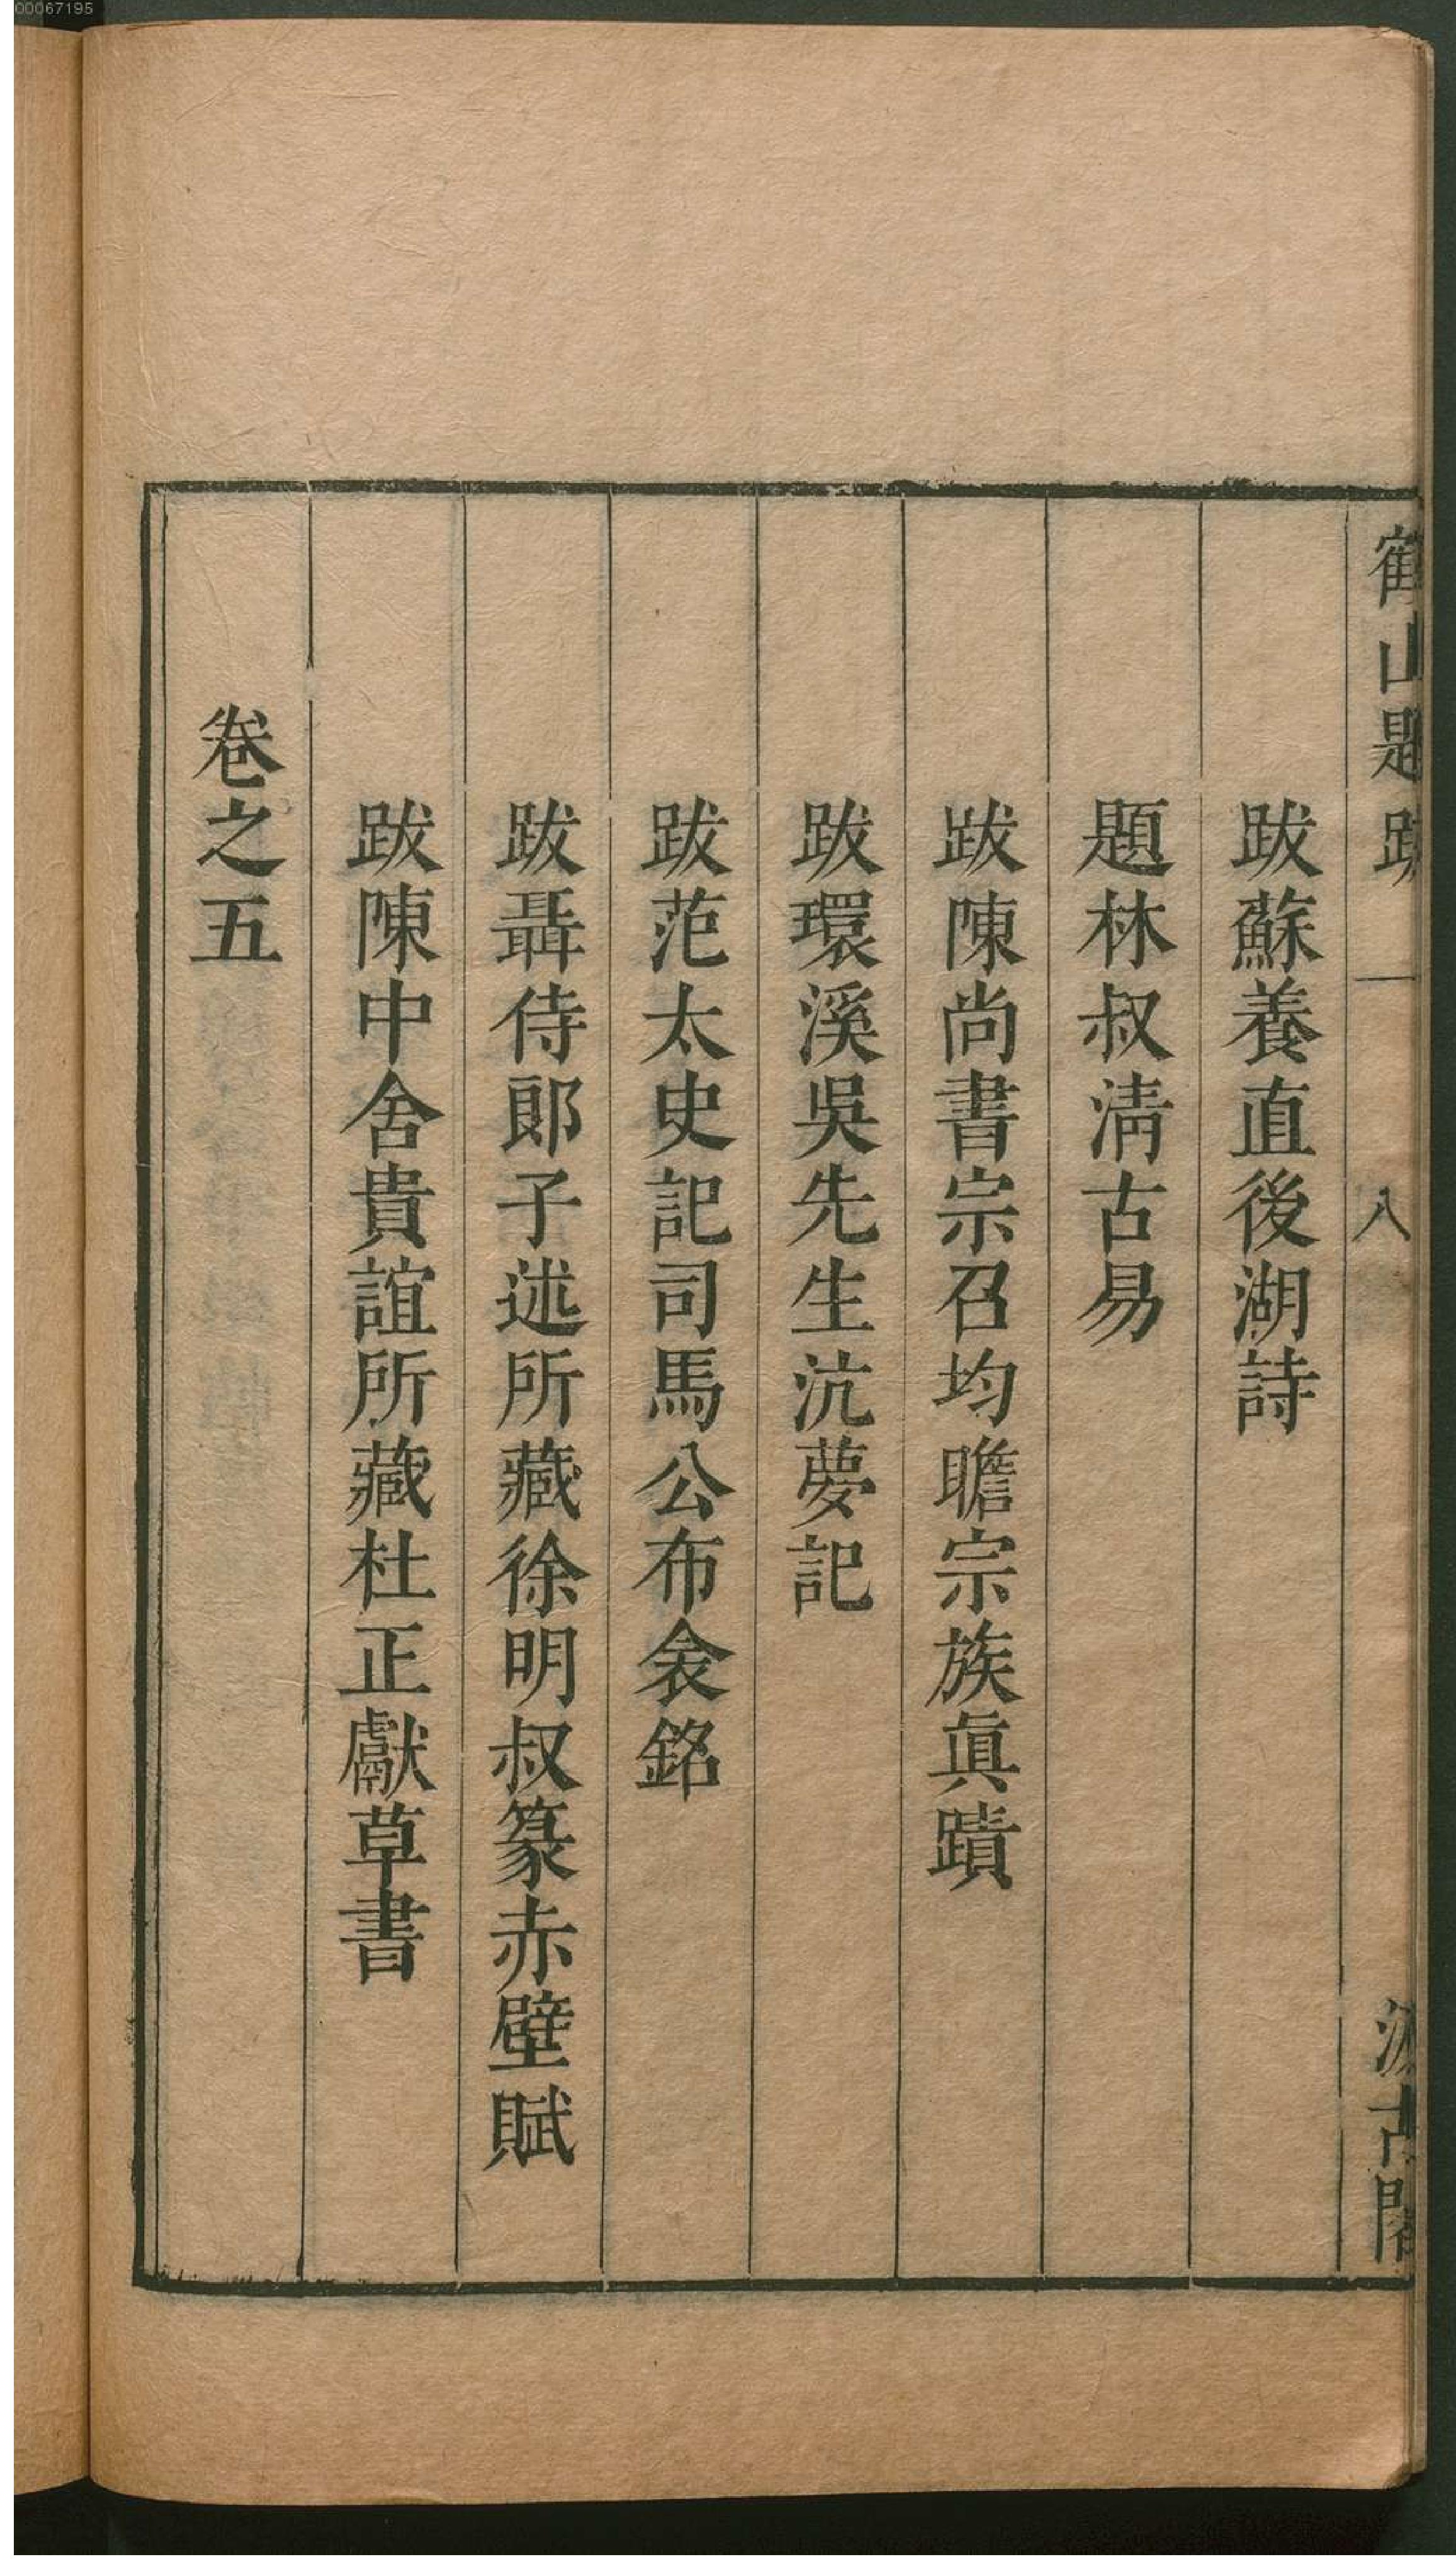 鶴山題跋
八
汲古閣
跋蘇養直後湖詩
題林叔淸古易
跋陳尚書宗召均瞻宗族眞蹟
跋環溪吳先生沆夢記
跋范太史記司馬公布衾銘
跋聶侍郞子述所藏徐明叔篆赤壁賦
跋陳中舍貴誼所藏杜正獻草書
卷之五
00067195